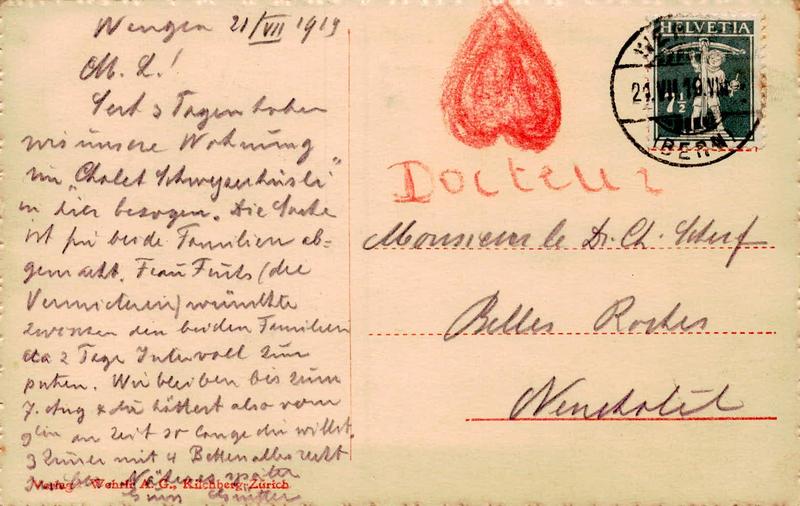 Wengen 21/VII 1919
M. L.!
Seit 3 Tagen haben
wir unsere Wohnung
im "Chalet Schwyzerhüsli"
hier bezogen. Die Sache
ist für beide Familien ab-
gemacht. Frau Fuchs (die
Vermieterin) wünschte
zwischen den beiden Familien
2 Tage Intervall zum
putzen. Wir bleiben bis zum
7. Aug & du hättest also vom
9ten an Zeit so lange du willst.
3 Zimmer mit 4 Betten alles recht
Näheres später
Gruss
Verlag Wehrli A. G., Kilchberg-Zürich
HELVETIA
7½
21.VII.19.VIII
BERN
Docteur
Monsieur le Dr. Ch. Scherf
Belles Roches
Neuchâtel